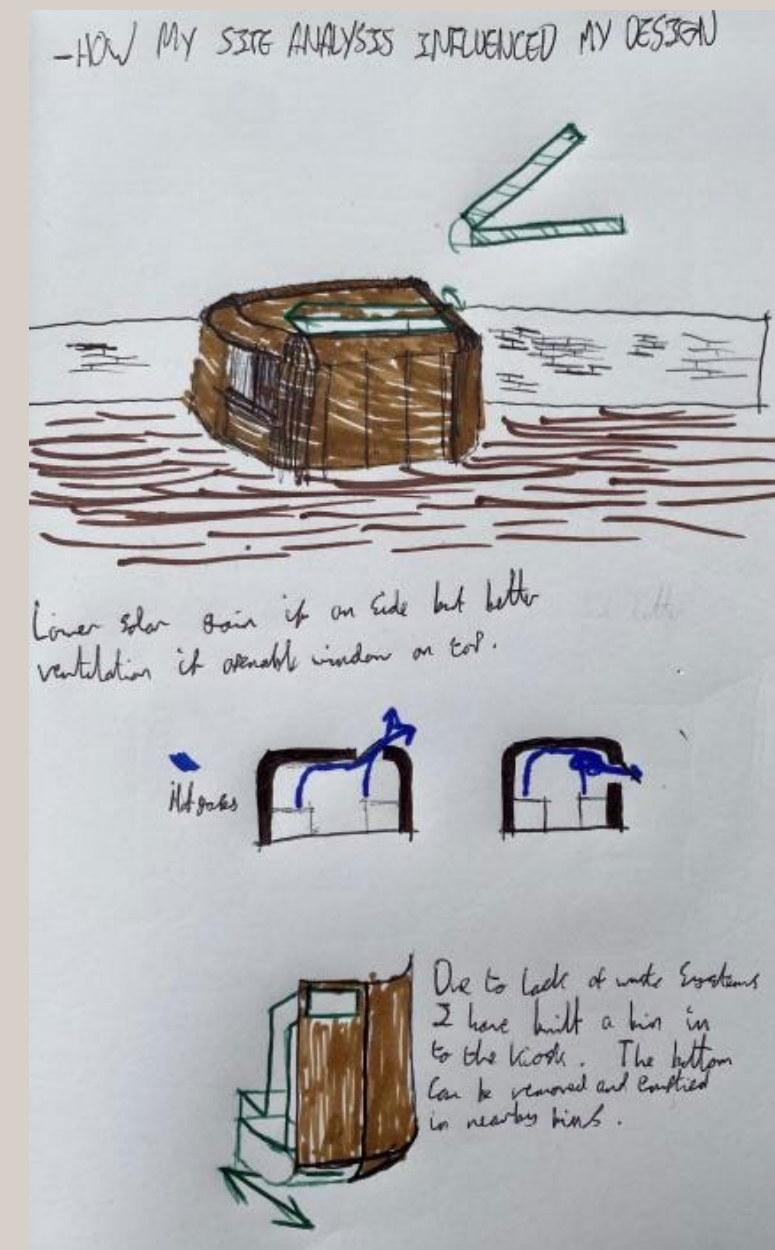 -HOW MY SITE ANALYSIS INFLUENCED MY DESIGN
Lower solar gain if on side but better
ventilation if openable window on top.
Hot gases
Due to lack of waste systems
I have built a bin in
to the kiosk. The bottom
can be removed and emptied
in nearby bins.